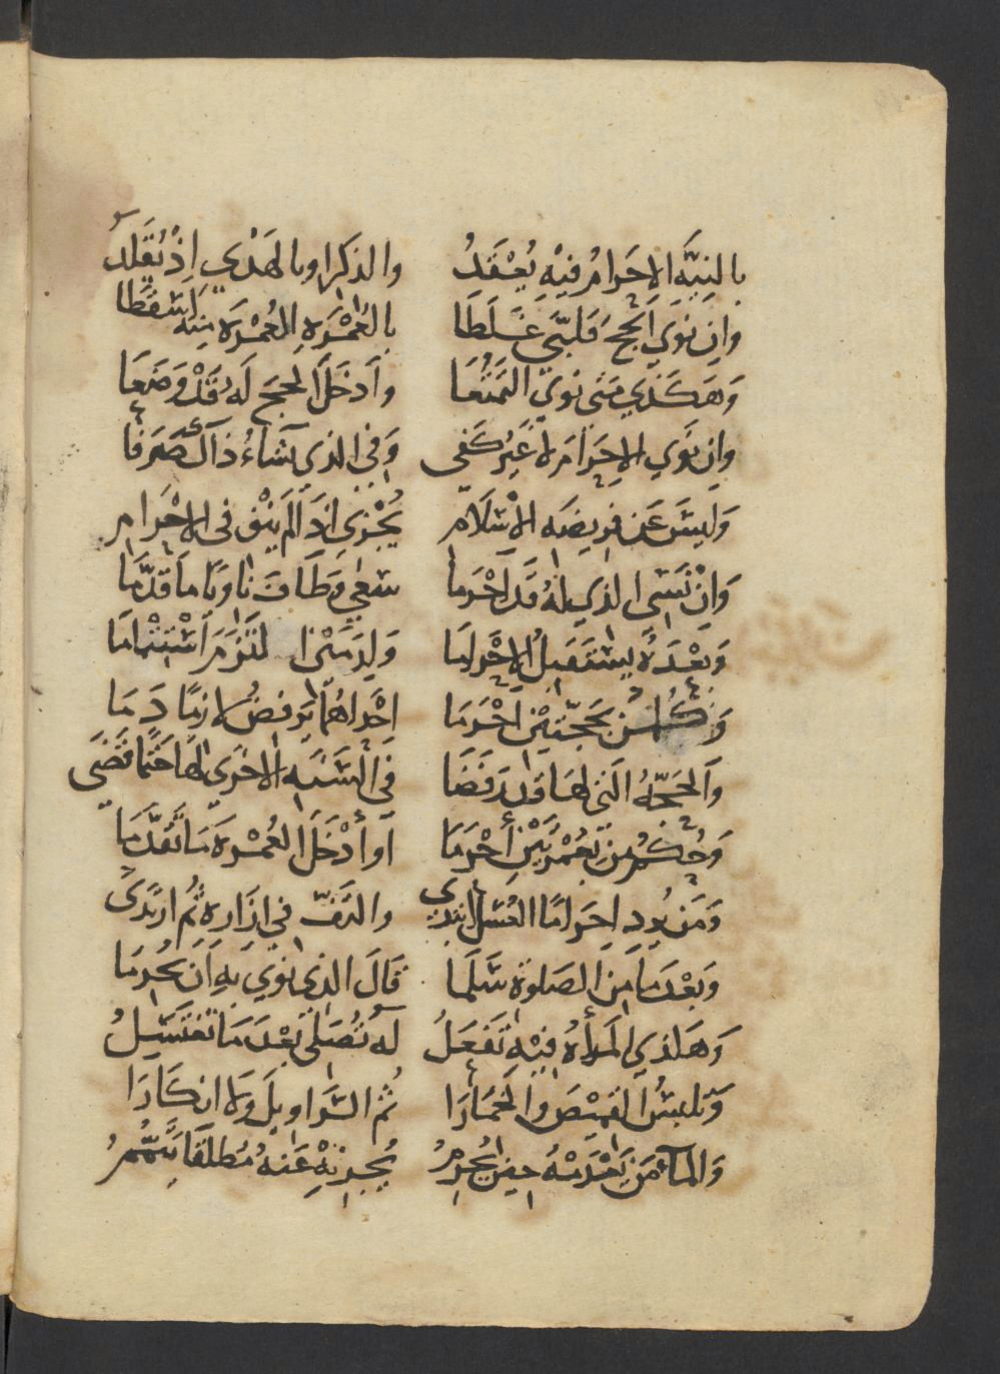 بِالنِيَّةِ الاِحرَامُ فِيْهِ يُعْقَدُ والذكرِ او بالهَدْيِ اِذْ يُقَلَّدُ
وإن نَوَي الحَجَّ فَلَبَّى غَلَطَا بالعُمْرَةِ العُمْرَة مِنه اسْقَطَا
وَهَكَذي مَتى نوي التَمَتُّعَا وأدخَلَ الحج لَهُ قَدْ وَضَعَا
وإن نَوَي الاحرَامَ لا غَيْرُ كَفى وَفي الذي يَشَاءُ ذاك صَرَفَا
وَلَيسَ عَن فريضة الاسْلَامِ يُجْزي اذَا لَم يَنْوِ في الاحْرامِ
وَاِنْ نَسِى الذي لهُ قَد اَحْرَما سعى وطَافَ ناويًا ما قدَّمَا
وَبَعْدَهُ يستقبِلُ الاحْرَاما وَلِدَمٍ لتَلْزَمَ اسْتِتْمامَا
وَ بحَجَّتَيْنِ اَحْرَمَا احْداهُما يَرفضُ لازمًا دَمَا
وَالحَجَّةُ التي لهَا قَد رَفَضَا في السَنَةِ الاخرَى لها حَتْمًا قَضَى
وحُكمُ مَن بعُمْرَتَيْنِ أحْرَمَا أو أَدْخَلَ العُمْرة مَا تَقَدَّمَا
وَمَن يُرد احرَامًا الغُسْلَ ابتدي والتَفَّ في إزَارِه ثُم ارْتَدَى
وَبَعْدَمَا مِن الصَلوة سَلَّما قَالَ الذِي نوي بِهِ اَن يُحْرِمَا
وَهَكذي المَرأةُ فيْهِ تَفعَلُ له تُصَلي بَعْدَ مَا تغتَسِلُ
وَتلبسُ القميصَ والخِمَارَا ثم السَراويلَ ولا انكَارَا
وَالمآء مَن يَعْدَمْهُ حِينَ يُحْرِمُ يُجزِئهُ عَنهُ مُطلَقًا تَيَمُّمُ